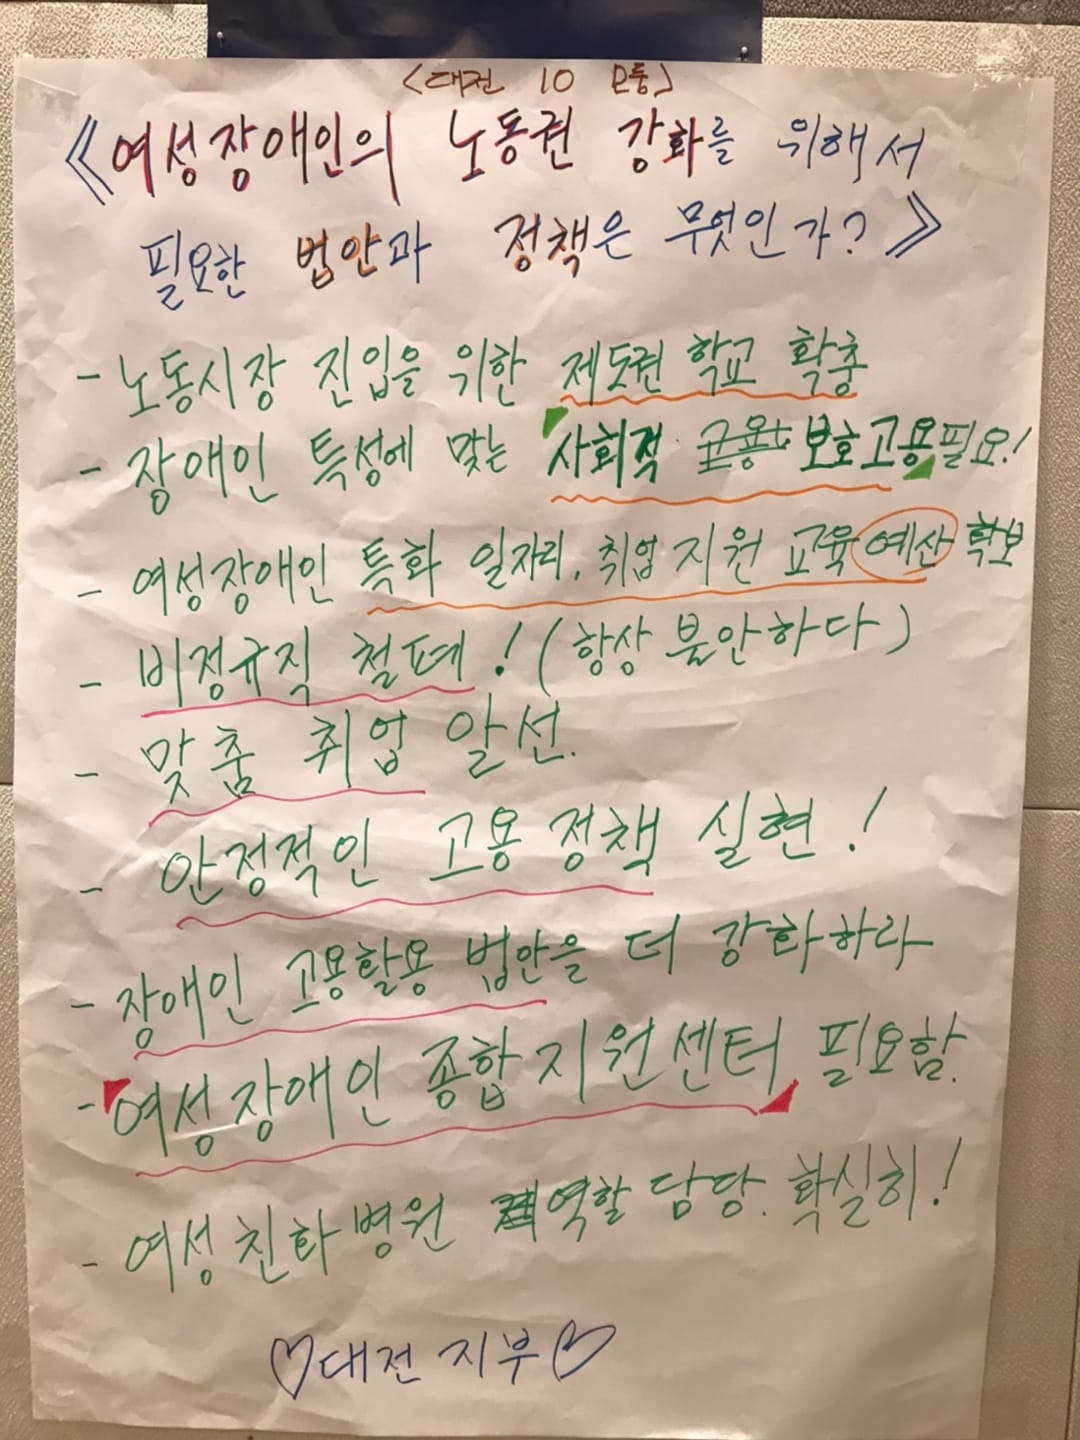 <대전 10 모둠>
《여성장애인의 노동권 강화를 위해서
필요한 법안과 정책은 무엇인가?》
- 노동시장 진입을 위한 제도권 학교 확충
- 장애인 특성에 맞는 사회적 보호고용필요!
- 여성장애인 특화 일자리, 취업지원 교육 예산 확보
- 비정규직 철폐! (항상 불안하다)
- 맞춤 취업 알선.
- 안정적인 고용정책 실현!
- 장애인 고용활용 법안을 더 강화하라
- 여성장애인 종합지원센터 필요함.
- 여성친화병원 역할 담당. 확실히!
♡대전 지부♡